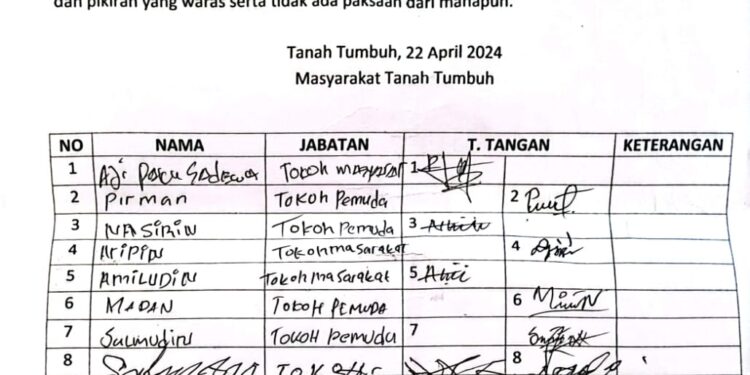 dan pikiran yang waras serta tidak ada paksaan dari manapun.
Tanah Tumbuh, 22 April 2024
Masyarakat Tanah Tumbuh
NO NAMA JABATAN T. TANGAN KETERANGAN
1 Aji Paku Sadewa Tokoh 1
2 Pirman Tokoh Pemuda 2
3 NASIRIN Tokoh Pemuda 3
4 Aripin Tokoh masarakat 4
5 AmiLUDIN Tokoh masarakat 5
6 MADAN TOKOH PEMUDA 6
7 Salmudin TOKOH pemuda 7
8 8